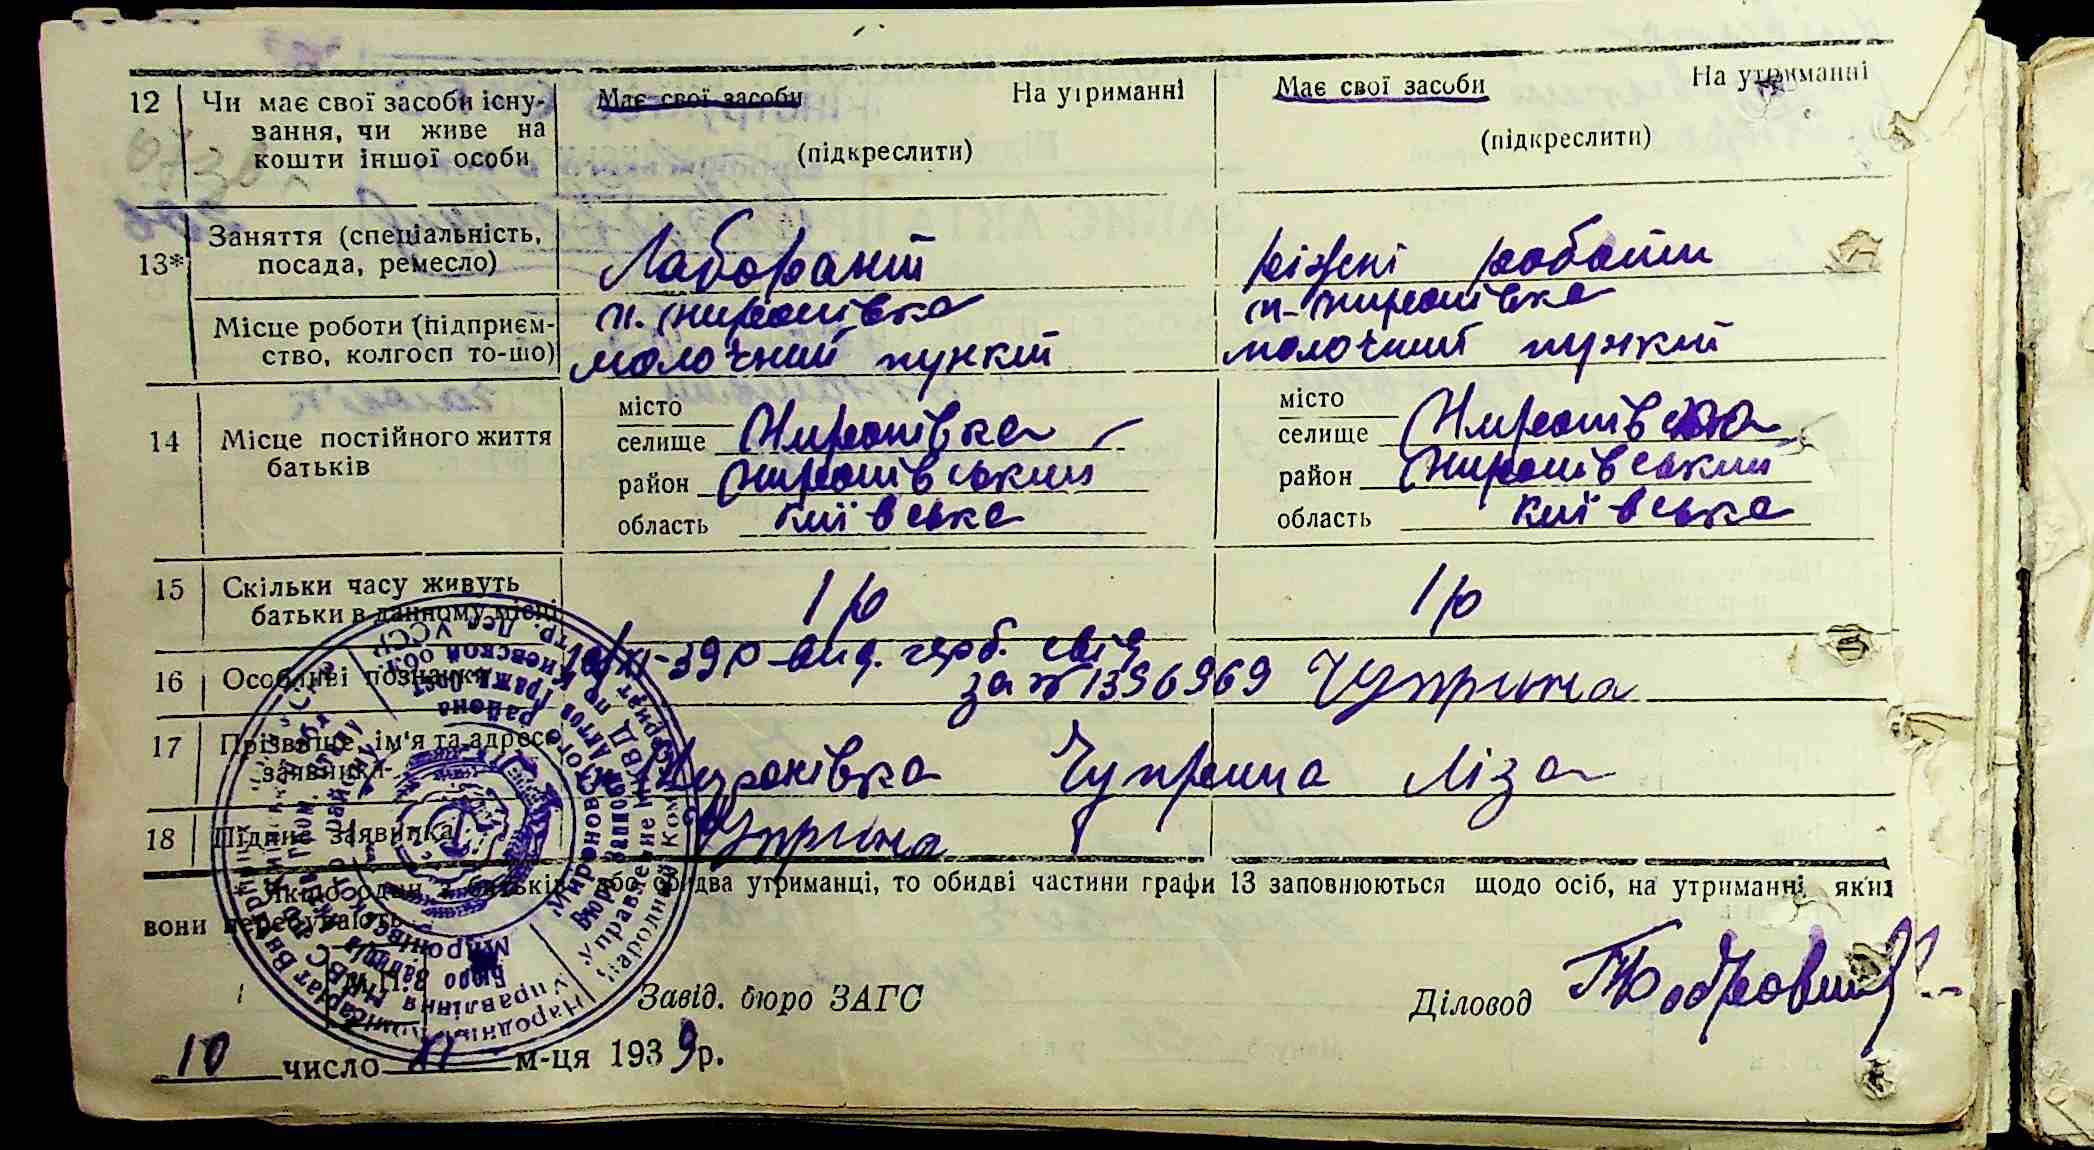 12 Чи має свої засоби існу- Має свої засоби На утриманні Має свої засоби На утриманні
вання, чи живе на (підкреслити) (підкреслити)
кошти іншої особи
13* Заняття (спеціальність, Лаборант різні роботи
посада, ремесло)
Місце роботи (підприєм- м. Миронівка м. Миронівка
ство, колгосп то-що) молочний пункт молочний пункт
14 Місце постійного життя місто місто
батьків селище Миронівка селище Миронівка
район Миронівський район Миронівський
область київська область київська
15 Скільки часу живуть 1 р 1 р
батьки в данному місці
16 Особливі познаки 10/XI-39 р вид. герб. свід
за № 1396969 Чуприна
17 Прізвище, ім'я та адреса Миронівка Чуприна Ліза
заявника
18 Підпис заявника Чуприна
* Якщо один з батьків або обидва утриманці, то обидві частини графи 13 заповнюються щодо осіб, на утриманні яких
вони перебувають.
М. П.
Завід. бюро ЗАГС Діловод
10 число XI м-ця 1939 р.